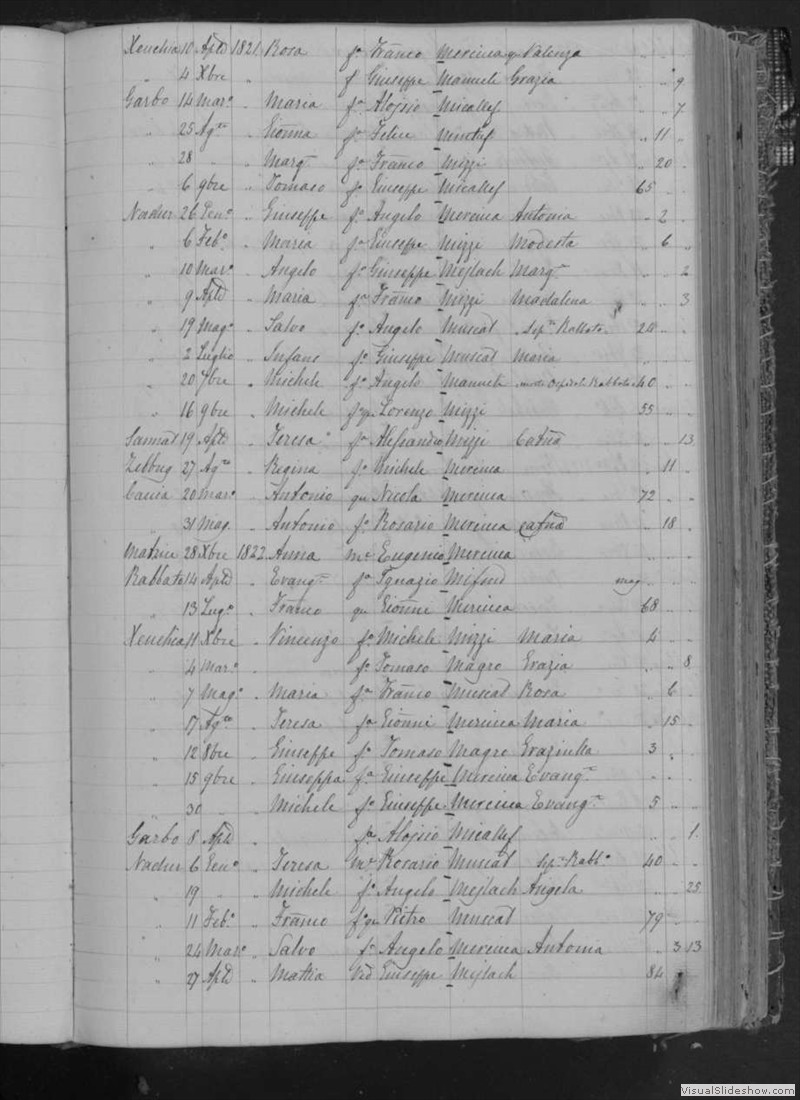 Xenchia 10 Aple 1821 Rosa fa Franco Mercieca q Valenza
" 4 Xbre " f Giuseppe Manueli Grazia " 9
Garbo 14 Maro " Maria fa Aloisio Micallef " 7
" 25 Agto " Gionna fa Felice " 11 "
" 28 " " Marga fa Franco Mizzi " 20 "
" 6 9bre " Tomaso fo Giuseppe Micallef 65 " "
Nadur 26 Geno " Giuseppe fo Angelo Mercieca Antonia " 2 "
" 6 Febo " Maria fa Giuseppe Mizzi Modesta " 6 "
" 10 Maro " Angelo fo Giuseppe Mejlach Marga " " 2
" 9 Aple " Maria fa Franco Mizzi Madalena " " 3
" 19 Mago " Salvo fo Angelo Muscat Sepo Rabbato 24 " "
" 2 Luglio " Infans fo Giuseppe Muscat Maria " " "
" 20 7bre " Michele fo Angelo Manueli morto Ospidale Rabbato 40 " "
" 16 9bre " Michele fo q Lorenzo Mizzi 55 " "
Sannat 19 Aple " Teresa fa Alessandro Mizzi Catna " " 13
Zebbug 27 Agto " Regina fa Michele Mercieca " 11 "
Cauia 20 Maro " Antonio qu Nicola Mercieca 72 " "
" 31 Mago " Antonio fo Rosario Mercieca Catna " 18 "
Matrice 28 Xbre 1822 Anna me Eugenio Mercieca " " "
Rabbato 14 Aple " Evanga fa Ignazio Mifsud mag " "
" 13 Lugo " Franco qu Gionne Mercieca 68 " "
Xenchia 11 Xbre " Vincenzo fo Michele Mizzi Maria 4 " "
" 4 Maro " fo Tomaso Magro Grazia " " 8
" 7 Mago " Maria fa Franco Muscat Rosa " 6 "
" 17 Agto " Teresa fa Gionni Mercieca Maria " 15 "
" 12 8bre " Giuseppe fo Tomaso Magro Graziulla 3 " "
" 15 9bre " Giuseppa fa Giuseppe Mercieca Evanga " " "
" 30 " Michele fo Giuseppe Mercieca Evanga 5 " "
Garbo 8 Aple " fa Aloisio Micallef " " 1
Nadur 6 Geno " Teresa me Rosario Muscat Sepa Rabbo 40 " "
" 19 " Michele fo Angelo Mejlach Angela " " 25
" 11 Febo " Franco fo qu Pietro Muscat 79 " "
" 24 Maro " Salvo fo Angelo Mercieca Antonia " 3 13
" 27 Aple " Mattia Ved Giuseppe Mejlach 84 "
VisualSlideshow.com